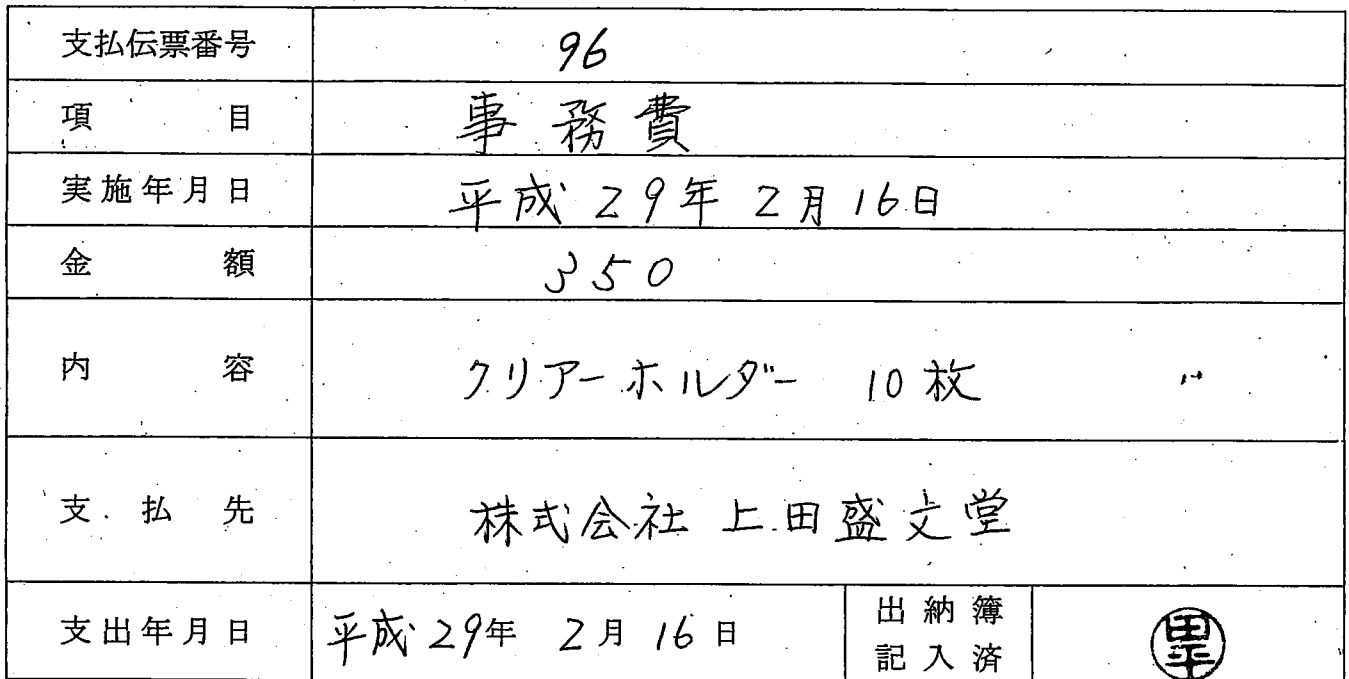 支払伝票番号 96
項目 事務費
実施年月日 平成29年2月16日
金額 350
内容 クリアーホルダー 10枚
支払先 株式会社 上田盛文堂
支出年月日 平成29年 2月 16日 出納簿
記入済